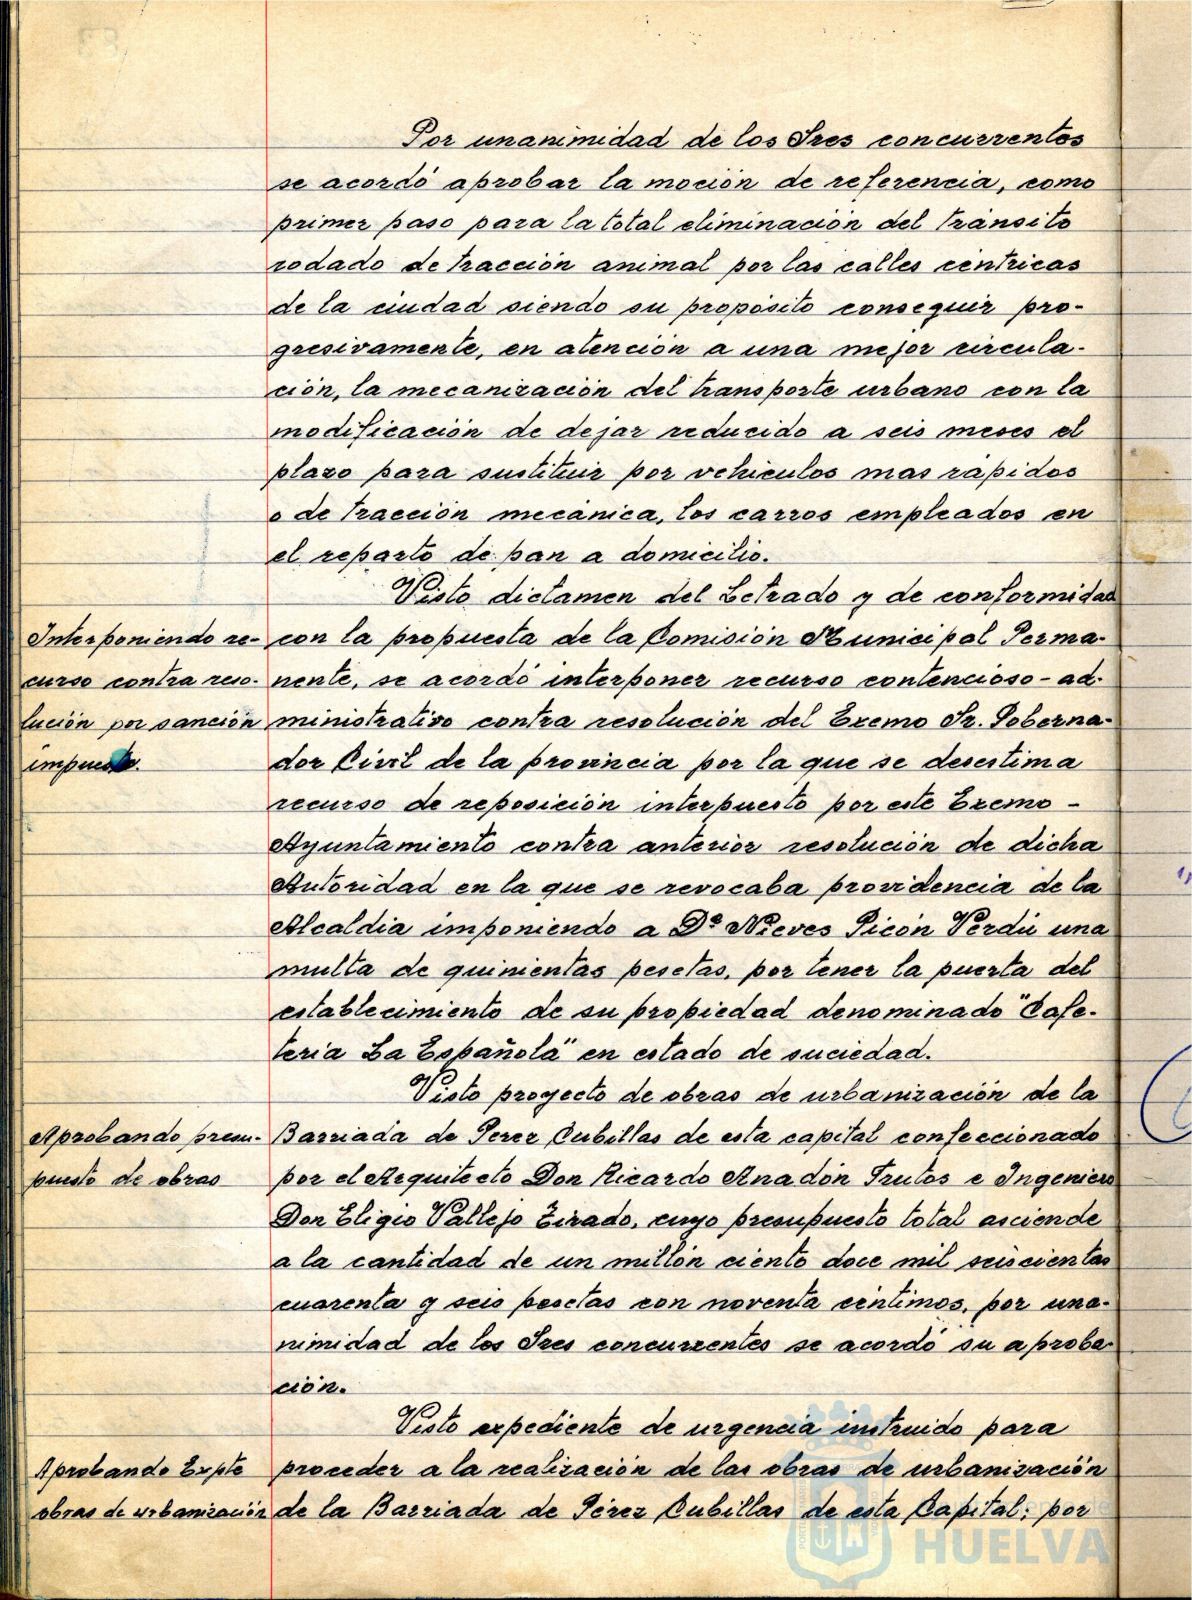 Por unanimidad de los Sres concurrentes
se acordó aprobar la moción de referencia, como
primer paso para la total eliminación del tránsito
rodado de tracción animal por las calles centricas
de la ciudad siendo su propósito conseguir pro-
gresivamente, en atención a una mejor circula-
ción, la mecanización del transporte urbano con la
modificación de dejar reducido a seis meses el
plazo para sustituir por vehiculos mas rápidos
o de tracción mecánica, los carros empleados en
el reparto de pan a domicilio.
Visto dictamen del Letrado y de conformidad
Interponiendo re-
curso contra reso-
lución por sanción
impuesta.
con la propuesta de la Comisión Municipal Perma-
nente, se acordó interponer recurso contencioso-ad-
ministrativo contra resolución del Excmo Sr. Goberna-
dor Civil de la provincia por la que se desestima
recurso de reposición interpuesto por este Excmo -
Ayuntamiento contra anterior resolución de dicha
Autoridad en la que se revocaba providencia de la
Alcaldia imponiendo a Dª Nieves Picón Verdú una
multa de quinientas pesetas, por tener la puerta del
establecimiento de su propiedad denominado "Cafe-
teria La Española" en estado de suciedad.
Visto proyecto de obras de urbanización de la
Aprobando presu-
puesto de obras
Barriada de Perez Cubillas de esta capital confeccionado
por el Arquitecto Don Ricardo Anadón Frutos e Ingeniero
Don Eligio Vallejo Tirado, cuyo presupuesto total asciende
a la cantidad de un millón ciento doce mil seiscientas
cuarenta y seis pesetas con noventa céntimos, por una-
nimidad de los Sres concurrentes se acordó su aproba-
ción.
Visto expediente de urgencia instruido para
Aprobando Expte
obras de urbanización
proceder a la realización de las obras de urbanización
de la Barriada de Pérez Cubillas de esta Capital; por
HUELVA